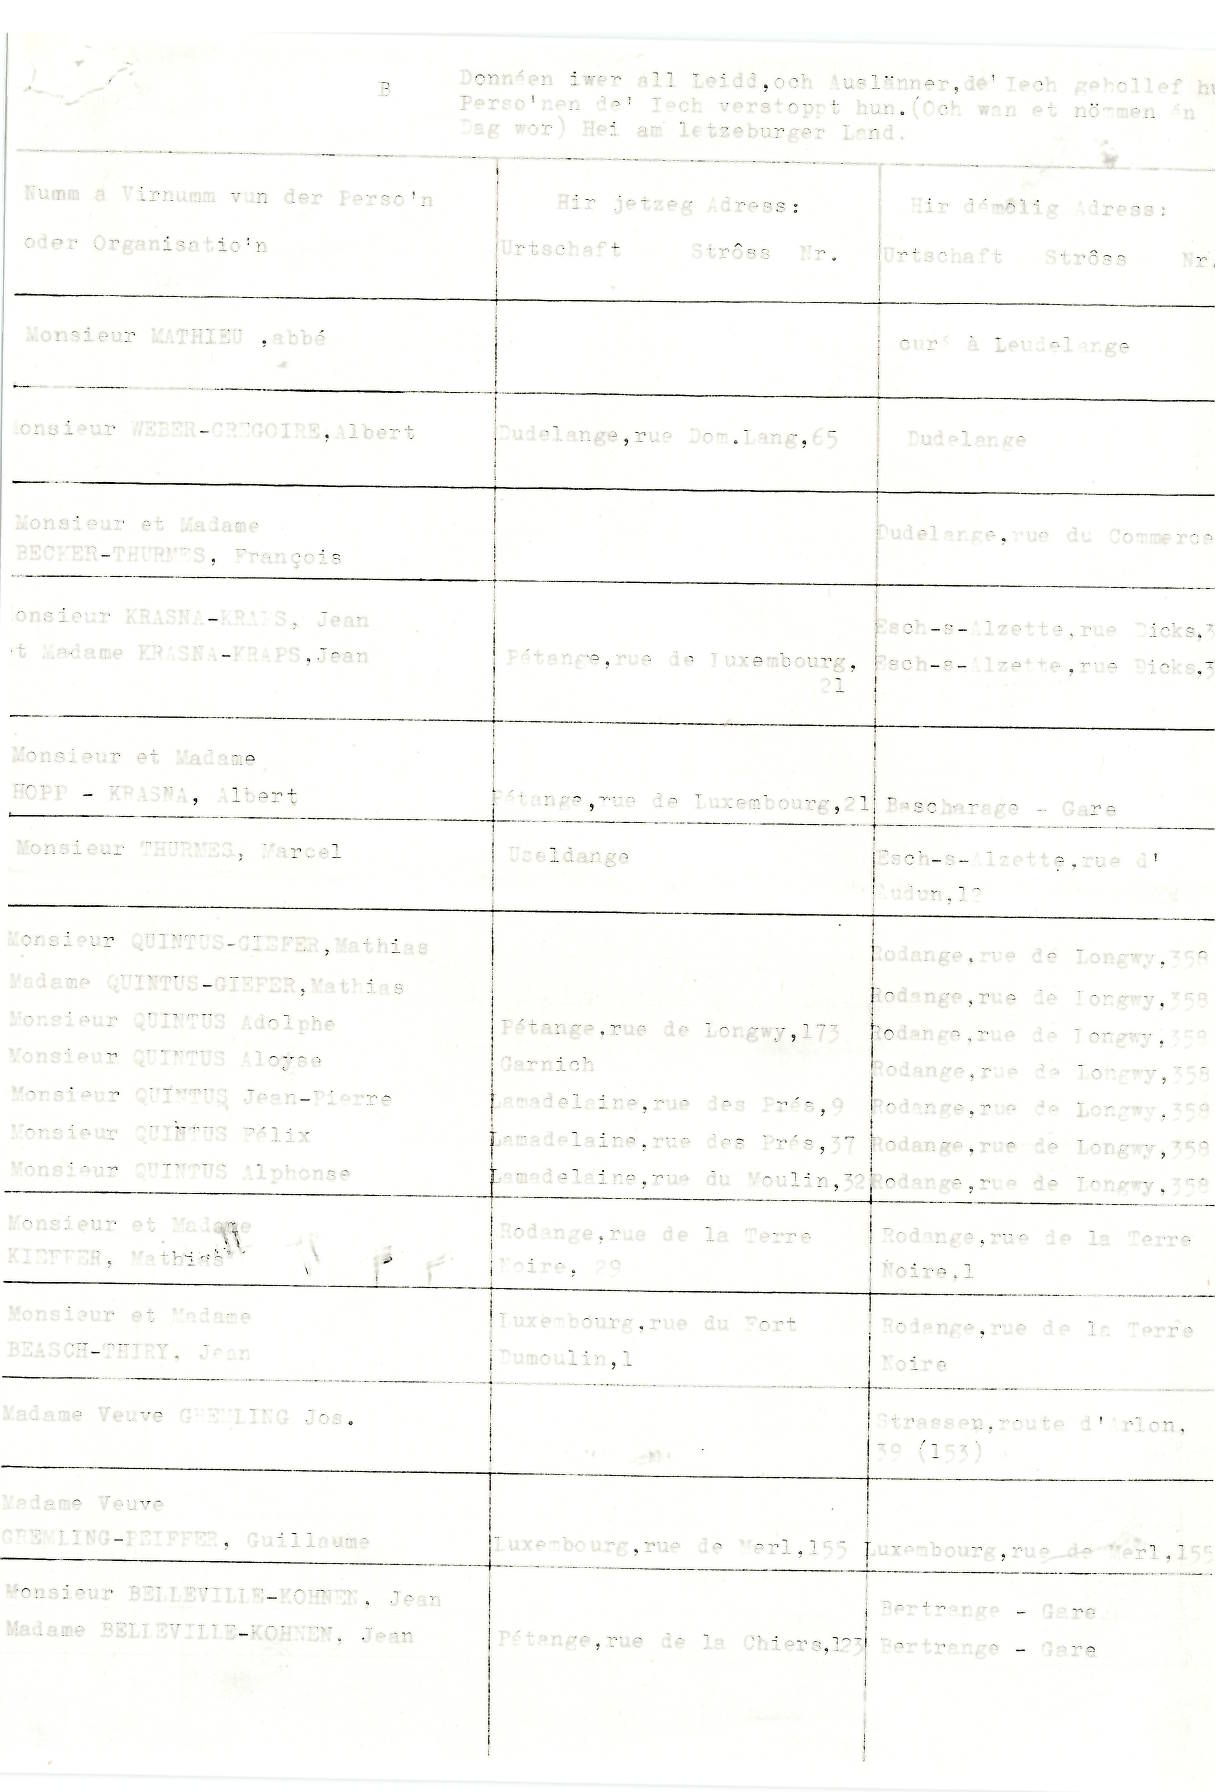 B
Donnéen iwer all Leidd,och Auslänner,de' Iech gehollef hu
Perso'nen de' Iech verstoppt hun.(Och wan et nömmen én
Dag wor) Hei am letzeburger Land.
Numm a Virnumm vun der Perso'n
oder Organisatio'n
Hir jetzeg Adress:
Urtschaft Strôss Nr.
Hir démôlig Adress:
Urtschaft Strôss Nr.
Monsieur MATHIEU ,abbé
curé à Leudelange
onsieur WEBER-GREGOIRE,Albert
Dudelange,rue Dom.Lang,65
Dudelange
Monsieur et Madame
BECKER-THURMES, François
Dudelange,rue du Commerce
onsieur KRASNA-KRAPS, Jean
Esch-s-Alzette,rue Dicks,3
et Madame KRASNA-KRAPS,Jean
Pétange,rue de Luxembourg,
21
Esch-s-Alzette,rue Dicks,3
Monsieur et Madame
HOPP - KRASNA, Albert
Pétange,rue de Luxembourg,21
Bascharage - Gare
Monsieur THURMES, Marcel
Useldange
Esch-s-Alzette,rue d'
Audun,12
Monsieur QUINTUS-GIEFER,Mathias
Rodange,rue de Longwy,358
Madame QUINTUS-GIEFER,Mathias
Rodange,rue de Longwy,358
Monsieur QUINTUS Adolphe
Pétange,rue de Longwy,173
Rodange,rue de Longwy,358
Monsieur QUINTUS Aloyse
Garnich
Rodange,rue de Longwy,358
Monsieur QUINTUS Jean-Pierre
Lamadelaine,rue des Prés,9
Rodange,rue de Longwy,358
Monsieur QUINTUS Félix
Lamadelaine,rue des Prés,37
Rodange,rue de Longwy,358
Monsieur QUINTUS Alphonse
Lamadelaine,rue du Moulin,32
Rodange,rue de Longwy,358
Monsieur et Madame
KIEFFER, Mathias
Rodange,rue de la Terre
Noire, 29
Rodange,rue de la Terre
Noire,1
Monsieur et Madame
BEASCH-THIRY, Jean
Luxembourg,rue du Fort
Dumoulin,1
Rodange,rue de la Terre
Noire
Madame Veuve GREMLING Jos.
Strassen,route d'Arlon,
39 (153)
Madame Veuve
GREMLING-PEIFFER, Guillaume
Luxembourg,rue de Merl,155
Luxembourg,rue de Merl,155
Monsieur BELLEVILLE-KOHNEN, Jean
Bertrange - Gare
Madame BELLEVILLE-KOHNEN, Jean
Pétange,rue de la Chiers,123
Bertrange - Gare